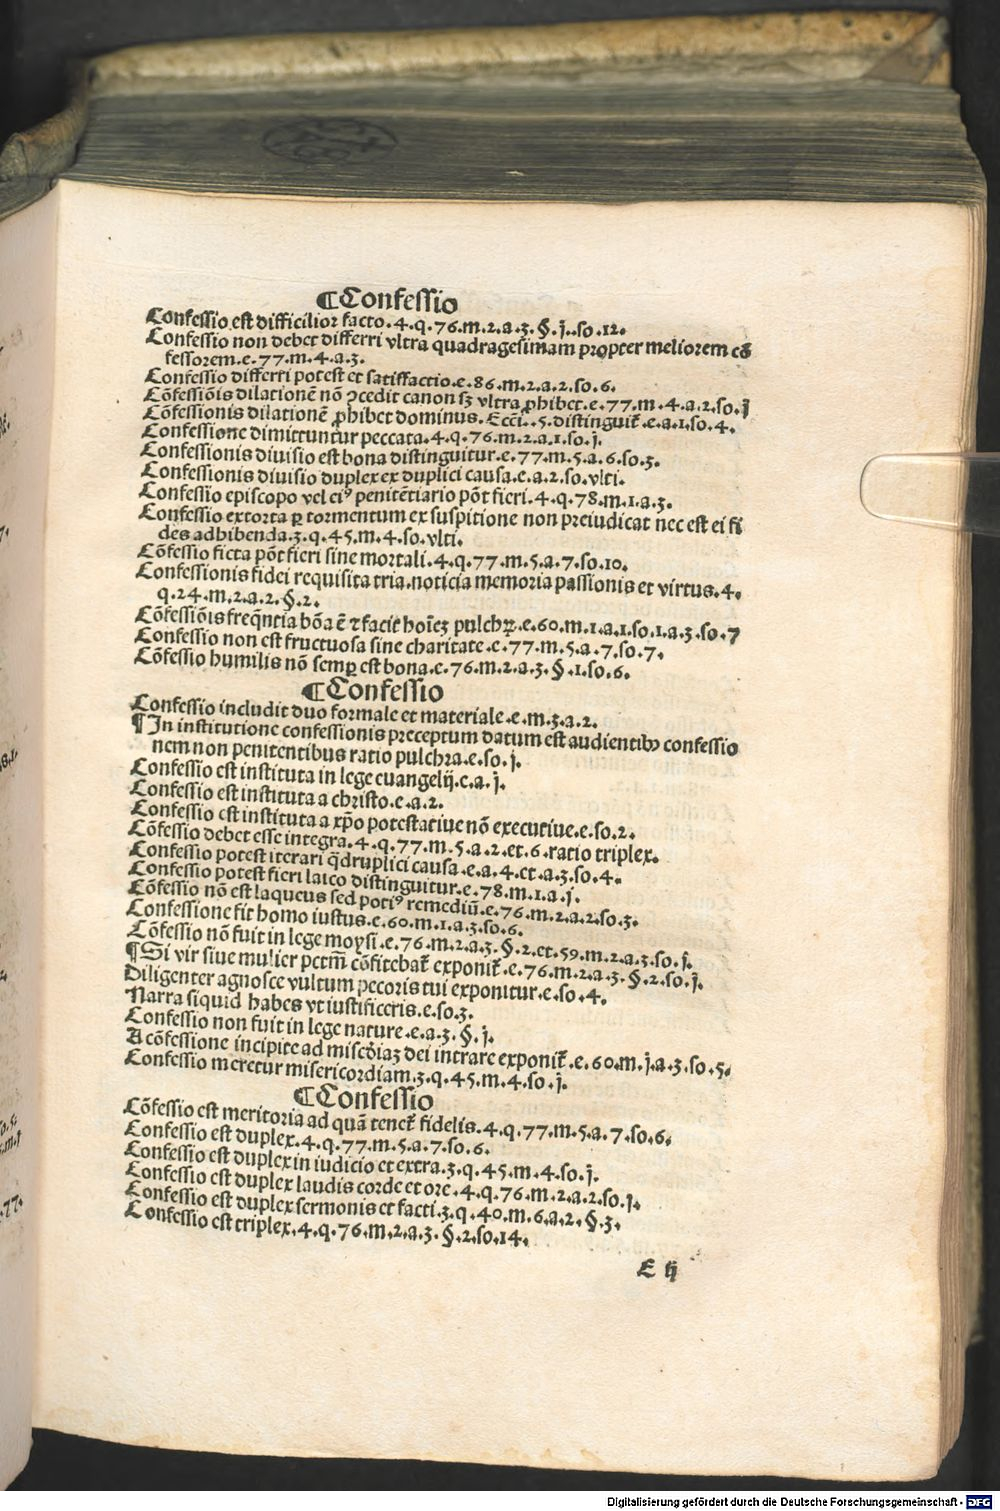 ¶Confessio
Confessio est difficilior facto.4.q.76.m.2.a.3.§.j.so.12.
Confessio non debet differri vltra quadragesimam propter meliorem cō
fessorem.e.77.m.4.a.3.
Confessio differri potest et satiffactio.e.86.m.2.a.2.so.6.
Cōfessiōis dilationē nō ꝯcedit canon sꝫ vltra ꝓhibet.e.77.m.4.a.2.so.j
Cōfessionis dilationē ꝓhibet dominus. Ecci..5.distinguit̄.e.a.1.so.4.
Confessione dimittuntur peccata.4.q.76.m.2.a.1.so.j.
Confessionis diuisio est bona distinguitur.e.77.m.5.a.6.so.3.
Confessionis diuisio duplex ex duplici causa.e.a.2.so.vlti.
Confessio episcopo vel eiꝰ penitētiario pōt fieri.4.q.78.m.1.a.3.
Confessio extorta ꝑ tormentum ex suspitione non preiudicat nec est ei fi
des adhibenda.3.q.45.m.4.so.vlti.
Cōfessio ficta pōt fieri sine mortali.4.q.77.m.5.a.7.so.10.
Confessionis fidei requisita tria.noticia memoria passionis et virtus.4.
q.24.m.2.a.2.§.2.
Cōfessiōis freq̄ntia bōa ē ⁊ facit hoīeꝫ pulchꝝ.e.60.m.1.a.1.so.1.a.3.so.7
Confessio non est fructuosa sine charitate.e.77.m.5.a.7.so.7.
Cōfessio humilis nō semꝑ est bona.e.76.m.2.a.3.§.1.so.6.
¶Confessio
Confessio includit duo formale et materiale.e.m.3.a.2.
¶In institutione confessionis preceptum datum est audientibꝰ confessio
nem non penitentibus ratio pulchra.e.so.j.
Confessio est instituta in lege euangelij.e.a.j.
Confessio est instituta a christo.e.a.2.
Confessio est instituta a xp̄o potestatiue nō executiue.e.so.2.
Cōfessio debet esse integra.4.q.77.m.5.a.2.et.6.ratio triplex.
Confessio potest iterari q̄druplici causa.e.a.4.et.a.3.so.4.
Confessio potest fieri laico distinguitur.e.78.m.1.a.j.
Cōfessio nō est laqueus sed potiꝰ remediū.e.76.m.2.a.2.so.3.
Confessione fit homo iustus.e.60.m.1.a.3.so.6.
Cōfessio nō fuit in lege moysi.e.76.m.2.a.3.§.2.et.59.m.2.a.3.so.j.
¶Si vir siue mulier petm̄ cōfitebat̄ exponit̄.e.76.m.2.a.3.§.2.so.j.
Diligenter agnosce vultum pecoris tui exponitur.e.so.4.
Narra siquid habes vt iustificeris.e.so.3.
Confessio non fuit in lege nature.e.a.3.§.j.
A cōfessione incipite ad misc̄diaꝫ dei intrare exponit̄.e.60.m.j.a.3.so.5.
Confessio meretur misericordiam.3.q.45.m.4.so.j.
¶Confessio
Cōfessio est meritoria ad quā tenet̄ fidelis.4.q.77.m.5.a.7.so.6.
Confessio est duplex.4.q.77.m.5.a.7.so.6.
Confessio est duplex in iudicio et extra.3.q.45.m.4.so.j.
Confessio est duplex laudis corde et ore.4.q.76.m.2.a.2.so.j.
Confessio est duplex sermonis et facti.3.q.40.m.6.a.2.§.3.
Confessio est triplex.4.q.76.m.2.a.3.§.2.so.14.
E ij
Digitalisierung gefördert durch die Deutsche Forschungsgemeinschaft - DFG